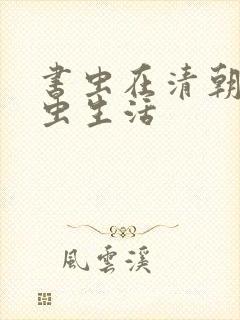 書虫在清朝
虫生活
風雲溪